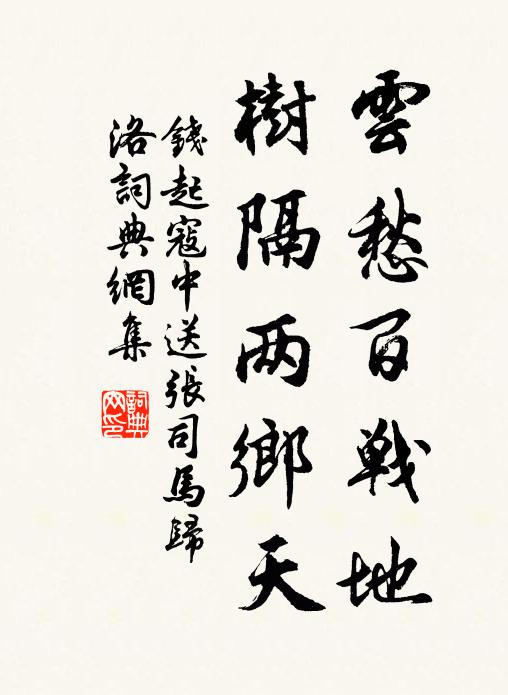 雲愁百戦地
樹隔两鄉天
錢起寇中送張司馬歸
洛詞典網集
詞典
网印